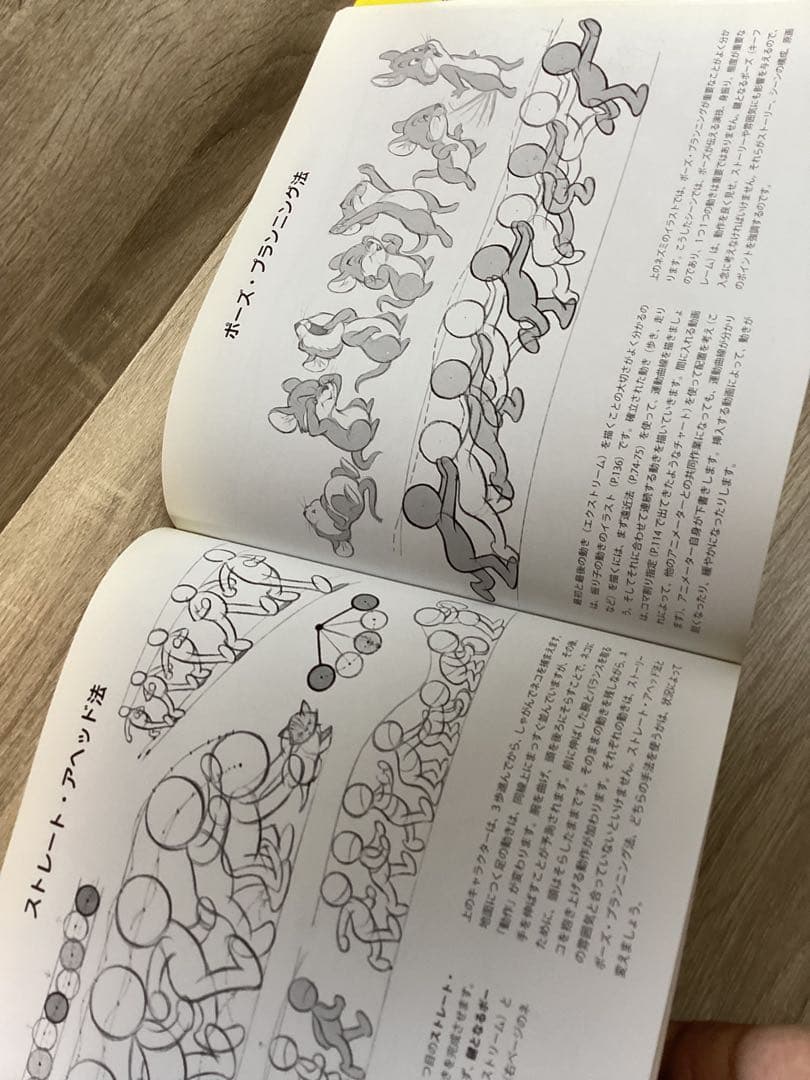 ストレート・アヘッド法
つ目のストレート・
きを完成させます。
ず、鍵となるポー
ストリーム）と
右ページのネ
上のキャラクターは、3歩進んでから、しゃがんでネコを捕まえます。
地面につく足の動きは、同線上にまっすぐ並んでいますが、その後、
「動作」が変わります。腕を曲げ、頭を後ろにそらすことで、ネコに
手を伸ばすことが予告されます。前に伸ばした腕とバランスを取る
ために、頭はそらしたままです。そのままの動きを残しながら、ネ
コを抱き上げる動作が加わります。それぞれの動きは、ストーリー
の雰囲気と合っていないといけません。ストレート・アヘッド法と
ポーズ・プランニング法、どちらの手法を使うかは、状況によって
変えましょう。
ポーズ・プランニング法
最初と最後の動き（エクストリーム）を描くことの大切さがよく分かるの
は、振り子の動きのイラスト（P.136）です。確立された動き（歩き、走り
など）を描くには、まず遠近法（P.74-75）を使って、運動曲線を描きましょ
う。そしてそれに合わせて連続する動きを描いていきます。間に入れる動画
は、コマ割り指定（P.114で出てきたようなチャート）を使って配置を考え（こ
れによって、他のアニメーターとの共同作業になっても、運動曲線が分かり
ます）、アニメーター自身が下書きします。挿入する動画によって、動きが
鋭くなったり、緩やかになったりします。
上のネズミのイラストでは、ポーズ・プランニングが重要なことがよく分か
ります。こうしたシーンでは、ポーズが伝える演技、身振り、態度が重要な
のであり、1つ1つの動きは重要ではありません。鍵となるポーズ（キーフ
レーム）は、動作を良く見せ、ストーリーや雰囲気にも影響を与えるので、
入念に考えなければいけません。それらがストーリー、シーンの構成、原画
のポイントを強調するのです。